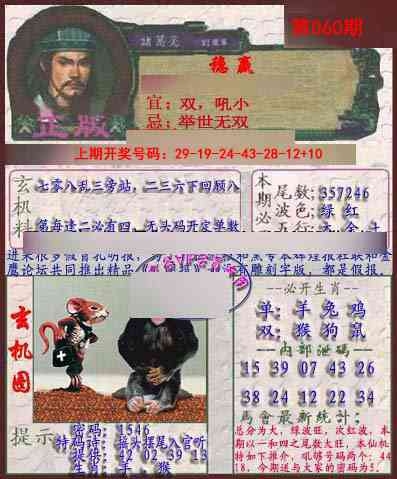 第060期
諸葛亮
稳赢
宜：双，吼小
忌：举世无双
正版
上期开奖号码：29-19-24-43-28-12+10
玄机料
七零八乱三旁站，二三六下回顾八
第每逢二必有四，无头码开定单数
本期必
尾数：357246
波色：绿 红
五行：
鹰论坛共同推出精品
有雕刻字版，都是假报。
玄机图
必开生肖
单：羊兔鸡
双：猴狗鼠
内部泄码
15 39 07 43 26
38 24 12 22 34
馬會最新統计：
总分为大，绿波旺，次红波，本
期以一和四之尾数大旺，本仙机
特如下推介，吼够号码两个：44
18，今期送与大家的密码为5.
提示
密码：1546
特码诗：接头摆尾入官听
提供：42 02 39 13
生肖：羊，猴